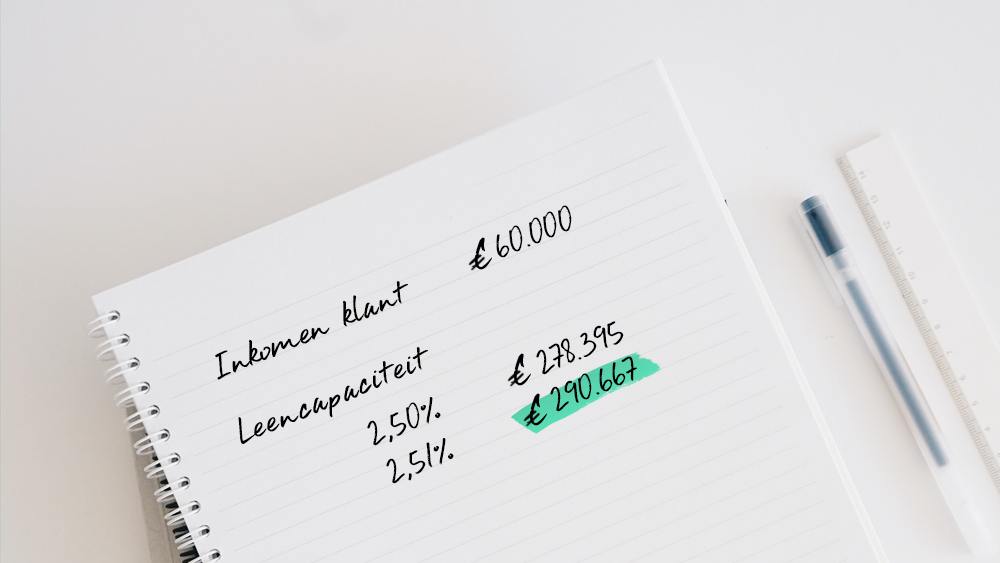 Inkomen klant € 60.000
Leencapaciteit
2,50% € 278.395
2,51% € 290.667